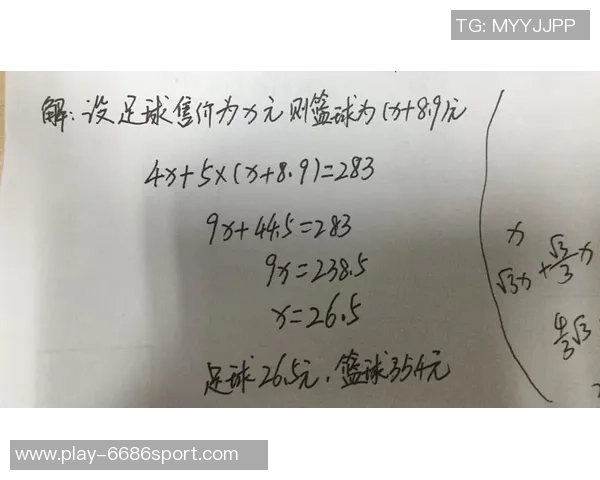 TG: MYYJJPP
解:设足球售价为x元则篮球为(x+8.9)元
4x+5×(x+8.9)=283
9x+44.5=283
9x=238.5
x=26.5
足球26.5元,篮球35.4元
x
√3x+√3/3x
4/3√3
www.play-6686sport.com